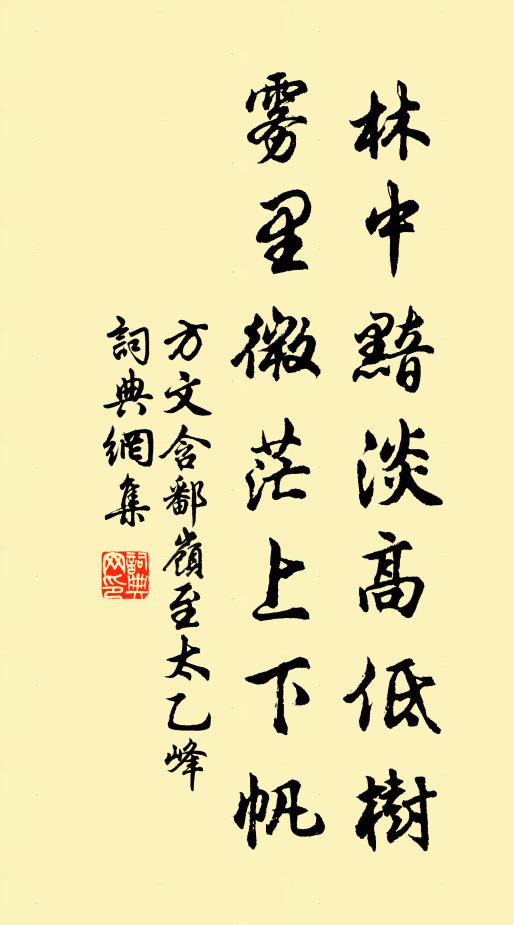 林中黯淡高低樹
雾里微茫上下帆
方文含鄱嶺至太乙峰
詞典網集
詞典网印